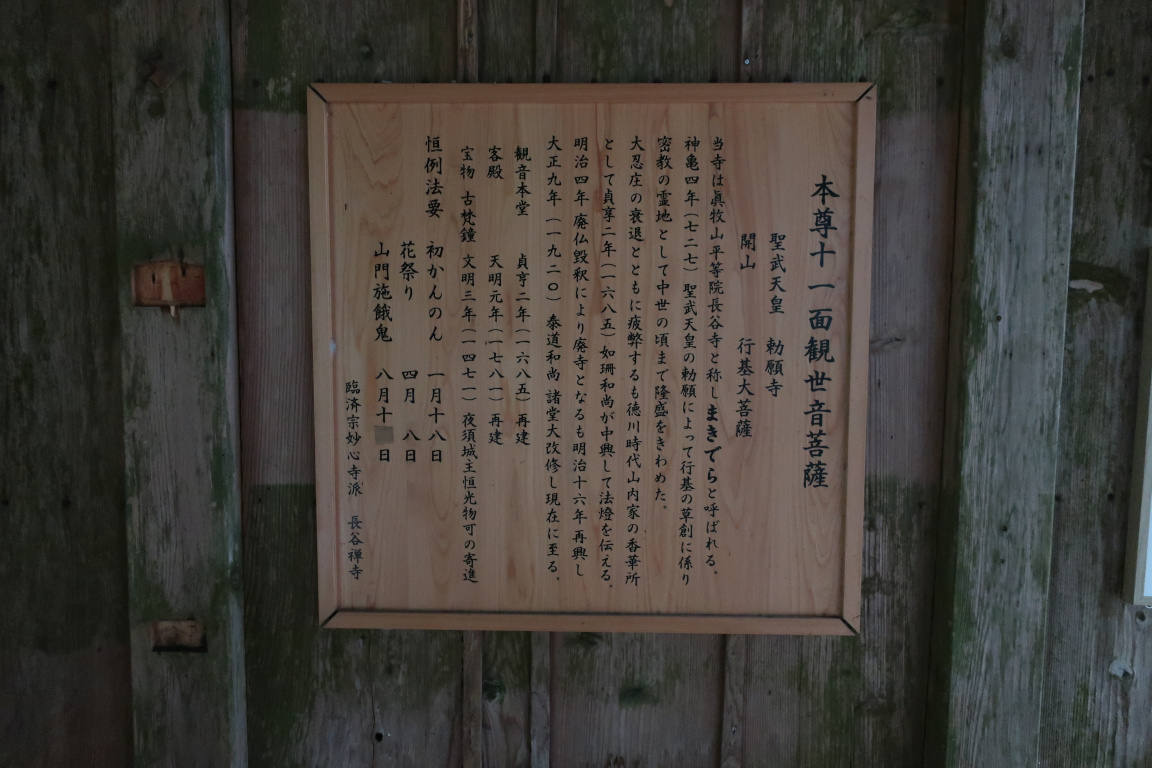 本尊十一面観世音菩薩
聖武天皇 勅願寺
開山 行基大菩薩
当寺は眞牧山平等院長谷寺と称しまきでらと呼ばれる。
神亀四年(七二七)聖武天皇の勅願によって行基の草創に係り
密教の霊地として中世の頃まで隆盛をきわめた。
大忍庄の衰退とともに疲弊するも徳川時代山内家の香華所
として貞享二年(一六八五)如珊和尚が中興して法燈を伝える。
明治四年 廃仏毀釈により廃寺となるも明治十六年再興し
大正九年(一九二〇) 泰道和尚 諸堂大改修し現在に至る。
観音本堂 貞亨二年(一六八五)再建
客殿 天明元年(一七八一)再建
宝物 古梵鐘 文明三年(一四七一)夜須城主恒光物可の寄進
恒例法要 初かんのん 一月十八日
花祭り 四月 八日
山門施餓鬼 八月十 日
臨済宗妙心寺派 長谷禅寺